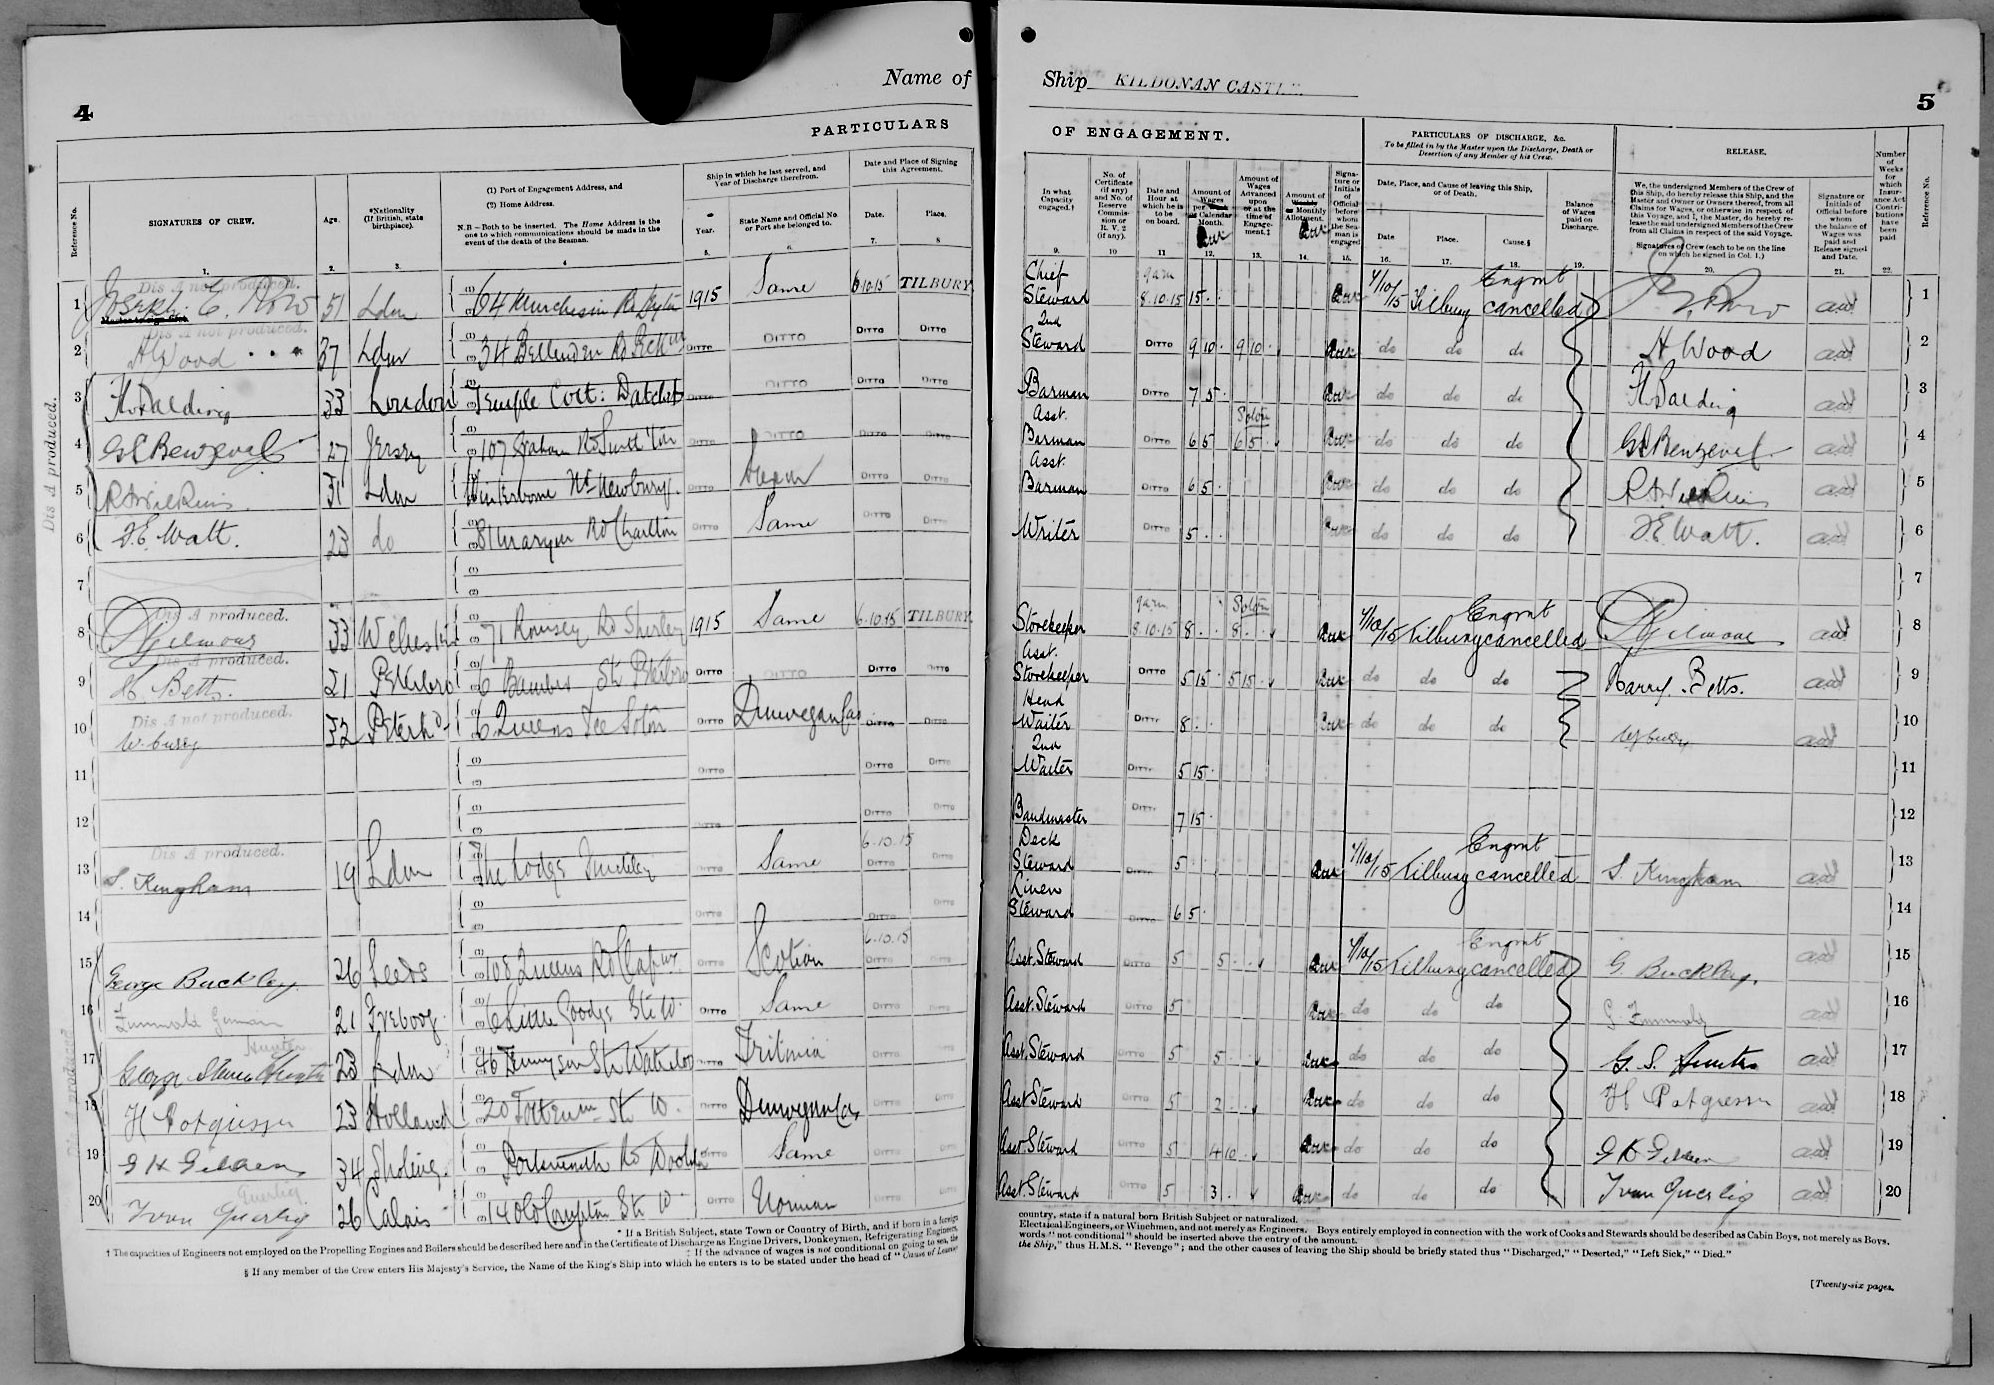 4
Name of
PARTICULARS
Reference No.
SIGNATURES OF CREW.
Age.
*Nationality (If British, state birthplace).
(1) Port of Engagement Address, and
(2) Home Address.
N.B.—Both to be inserted. The Home Address is the one to which communications should be made in the event of the death of the Seaman.
Ship in which he last served, and Year of Discharge therefrom.
Year.
State Name and Official No. or Port she belonged to.
Date and Place of Signing this Agreement.
Date.
Place.
1. 2. 3. 4 5. 6. 7. 8
Dis A not produced.
1 Joseph E. 51 Ldn 64 Murchison Rd 1915 Same 6.10.15 TILBURY
Dis A not produced.
2 H Wood 37 Ldn 34 Bellenden Rd DITTO DITTO DITTO DITTO
Dis A produced.
3 33 London Temple Cott: Datchet DITTO DITTO DITTO DITTO
4 27 Jersey 107 Graham Rd DITTO DITTO DITTO DITTO
5 31 Ldn Nr Newbury. DITTO DITTO DITTO
6 F.E. Watt. 23 do 81 Maryon Rd Charlton DITTO Same DITTO DITTO
7
Dis A produced.
8 Gilmour 33 71 Romsey Rd Shirley 1915 Same 6.10.15 TILBURY
Dis A produced.
9 H. Betts. 21 Peterboro 6 St DITTO DITTO DITTO DITTO
Dis A not produced.
10 32 6 Queens Tce Soton DITTO Dunvegan Cas DITTO DITTO
11 DITTO DITTO DITTO
12 DITTO DITTO DITTO
Dis A produced. 6.10.15
13 S. Kingham 19 Ldn The Lodge DITTO Same DITTO DITTO
14 DITTO DITTO DITTO
Dis A produced 6.10.15
15 George Buckley 26 Leeds 108 Queens Rd DITTO Scotian DITTO DITTO
16 21 6 Little Goodge St W. DITTO Same DITTO DITTO
Hunter
17 George 23 Ldn 46 Tennyson St Waterloo DITTO DITTO DITTO
18 H Potgiesser 23 Holland 20 Tottenham St W. DITTO Dunvegan Cas DITTO DITTO
19 34 Sholing. Portsmouth Rd Woolston DITTO Same DITTO DITTO
Querlig
20 Ivan Querlig 26 Calais 14 Old Compton St W DITTO DITTO DITTO
* If a British Subject, state Town or Country of Birth, and if born in a foreign
† The capacities of Engineers not employed on the Propelling Engines and Boilers should be described here and in the Certificate of Discharge as Engine Drivers, Donkeymen, Refrigerating Engineers,
‡ If the advance of wages is not conditional on going to sea, the
§ If any member of the Crew enters His Majesty's Service, the Name of the King's Ship into which he enters is to be stated under the head of "Cause of Leaving
Ship KILDONAN CASTLE.
5
OF ENGAGEMENT.
In what Capacity engaged.†
No. of Certificate (if any) and No. of Reserve Commission or R. V. 2 (if any).
Date and Hour at which he is to be on board.
Amount of Wages per Week or Calendar Month.
Amount of Wages Advanced upon or at the time of Engagement.‡
Amount of Weekly or Monthly Allotment.
Signature or Initials of Official before whom the Seaman is engaged
PARTICULARS OF DISCHARGE, &c.
To be filled in by the Master upon the Discharge, Death or Desertion of any Member of his Crew.
Date, Place, and Cause of leaving this Ship, or of Death.
Date
Place.
Cause.§
Balance of Wages paid on Discharge.
RELEASE.
We, the undersigned Members of the Crew of this Ship, do hereby release this Ship, and the Master and Owner or Owners thereof, from all Claims for Wages, or otherwise in respect of this Voyage, and I, the Master, do hereby release the said undersigned Members of the Crew from all Claims in respect of the said Voyage.
Signatures of Crew (each to be on the line on which he signed in Col. 1.)
Signature or Initials of Official before whom the balance of Wages was paid and Release signed and Date.
Number of Weeks for which Insurance Act Contributions have been paid
Reference No.
9. 10 11 12. 13. 14. 15. 16. 17. 18. 19. 20. 21. 22.
Chief Steward 9am 8.10.15 15 . . 7/10/15 Tilbury Engmt cancelled 1
2nd Steward DITTO 9 10 . 9 10 . do do do H Wood 2
Barman DITTO 7 5 . do do do 3
Asst. Barman DITTO 6 5 Soton 6 5 . do do do 4
Asst. Barman DITTO 6 5 . do do do 5
Writer DITTO 5 . . do do do F.E. Watt. 6
7
Storekeeper 9am 8.10.15 8 . . Soton 8 . . 7/10/15 Tilbury Engmt cancelled Gilmour 8
Asst. Storekeeper DITTO 5 15 . 5 15 . do do do Harry Betts. 9
Head Waiter DITTO 8 . . do do do 10
2nd Waiter DITTO 5 15 . 11
Bandmaster DITTO 7 15 . 12
Deck Steward DITTO 5 7/10/15 Tilbury Engmt cancelled S. Kingham 13
Linen Steward DITTO 6 5 . 14
Asst. Steward DITTO 5 5 . . 7/10/15 Tilbury Engmt cancelled G. Buckley. 15
Asst. Steward DITTO 5 do do do 16
Asst. Steward DITTO 5 5 . . do do do G. S. Hunter 17
Asst Steward DITTO 5 2 . . do do do H Potgiesser 18
Asst Steward DITTO 5 4 10 . do do do 19
Asst. Steward DITTO 5 3 . do do do Ivan Querlig 20
country, state if a natural born British Subject or naturalized.
Electrical Engineers, or Winchmen, and not merely as Engineers. Boys entirely employed in connection with the work of Cooks and Stewards should be described as Cabin Boys, not merely as Boys.
words "not conditional" should be inserted above the entry of the amount.
the Ship," thus H.M.S. "Revenge"; and the other causes of leaving the Ship should be briefly stated thus "Discharged," "Deserted," "Left Sick," "Died."
[Twenty-six pages.